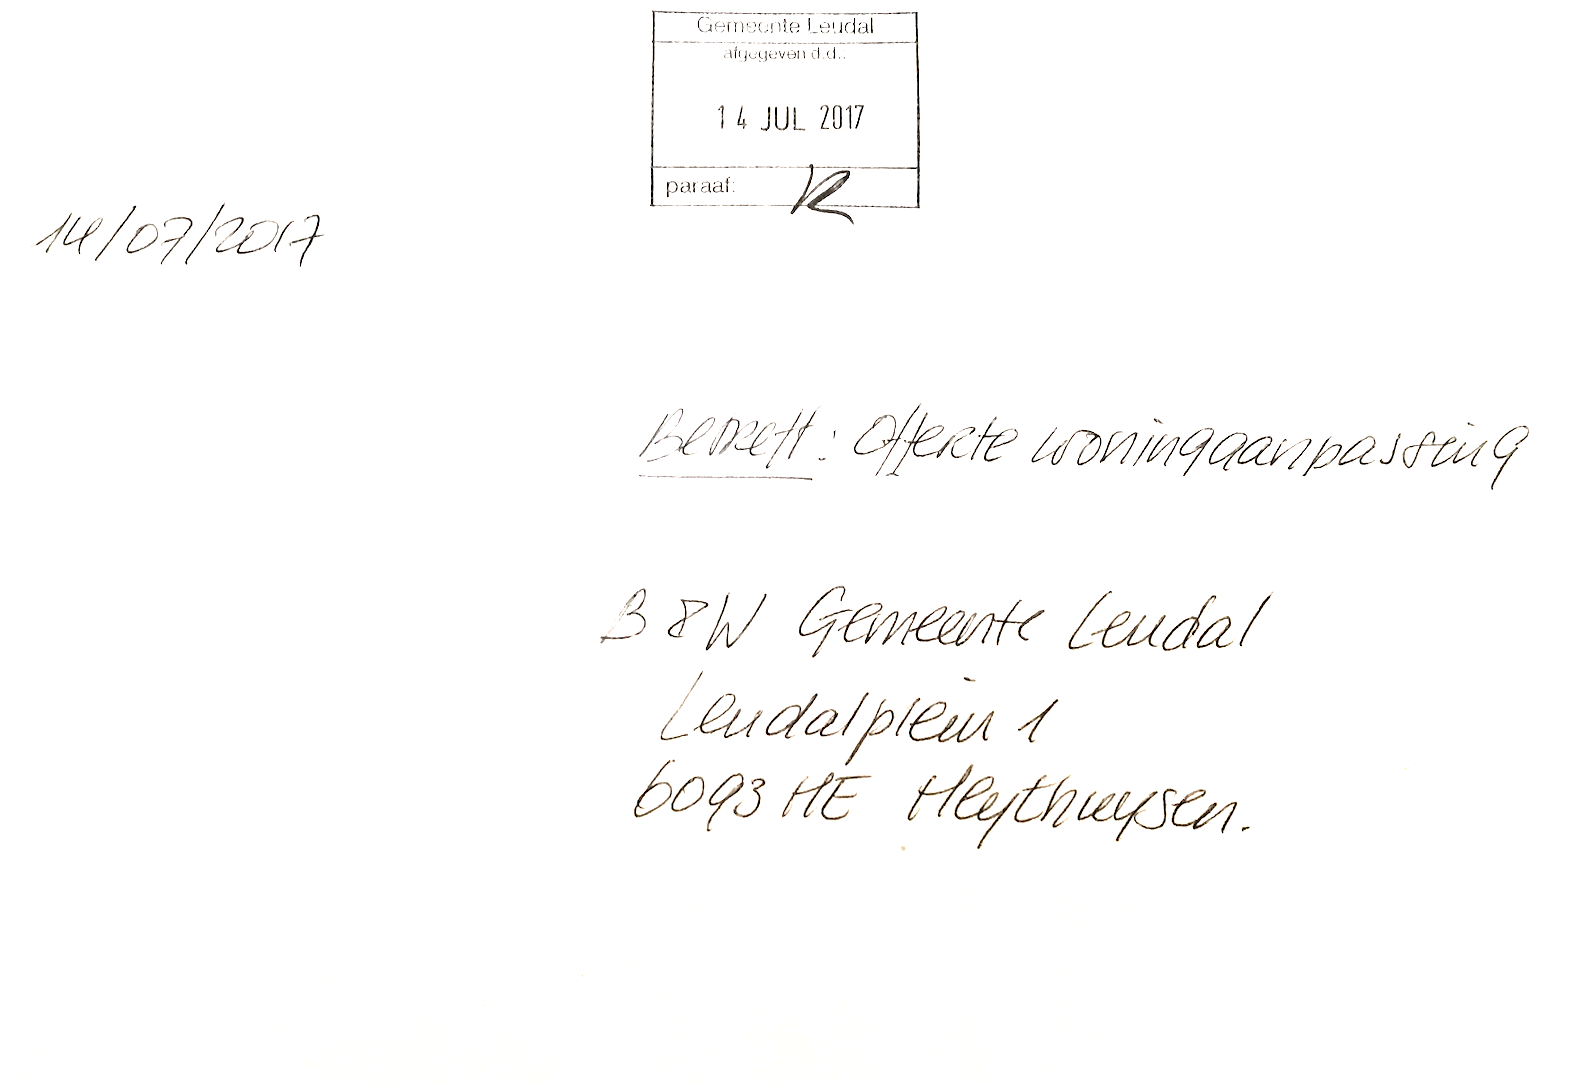 Gemeente Leudal
afgegeven d.d.:
14 JUL 2017
paraaf:
14/07/2017
Betreft: Offerte woningaanpassing
B&W Gemeente Leudal
Leudalplein 1
6093 HE Heythuysen.